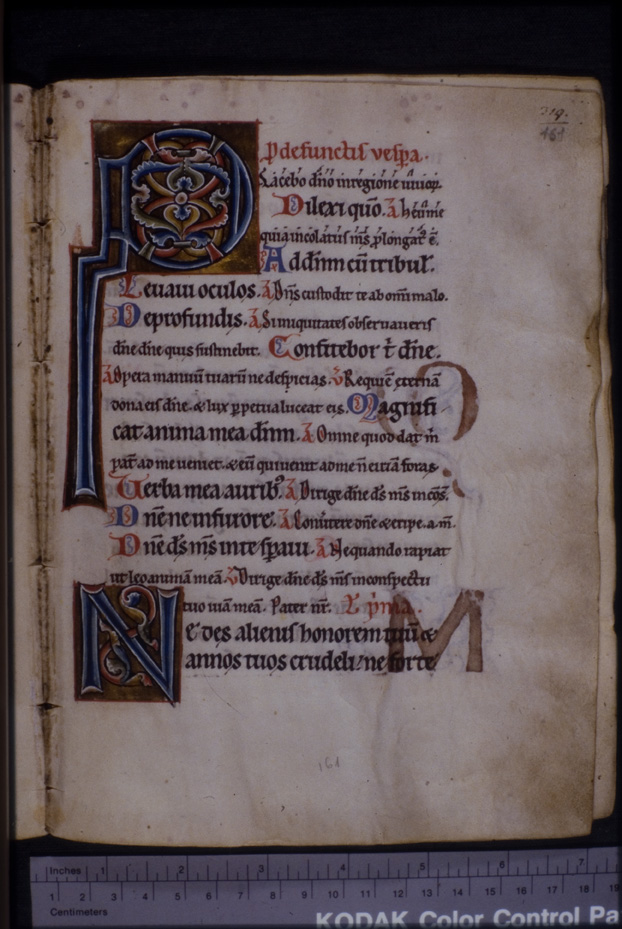 319.
161
P defunctis vespa.
Placebo dño in regione uiuoꝝ.
Dilexi qm̃o. A heu me
quia incolatus ms̃ p̱longat᷒ ẽ.
Ad dñm cũ tribul'.
Leuaui oculos. A Dñs custodit te ab omi malo.
Deprofundis. A Si iniquitates obseruaueris
dñe dñe quis sustinebit. Confitebor t̃ dñe.
A Opera manuũ tuarũ ne despicias. V Requiẽ eternã
dona eis dñe. & lux ꝑpetua luceat eis. Magnifi
cat anima mea dñm. A Omne quod dat m̃
pat̃ ad me ueniet. & eũ qui uenit ad me ñ eiciã foras.
Uerba mea aurib᷒. A Dirige dñe ds̃ ms̃
Dñe ne in furore. A Conuertere dñe & eripe. a. m̃.
Dñe ds̃ ms̃ in te spaui. A Nequando rapiat
ut leo animã meã. V Dirige dñe ds̃ ms̃ in conspectu
tuo uiã meã. Pater nr̃. L p̃ma.
Ne des alienis honorem tuũ &
annos tuos crudeli. ne forte
M
161
Inches 1 2 3 4 5 6 7
1 2 3 4 5 6 7 8 9 10 11 12 13 14 15 16 17 18 19
Centimeters
KODAK Color Control Pa